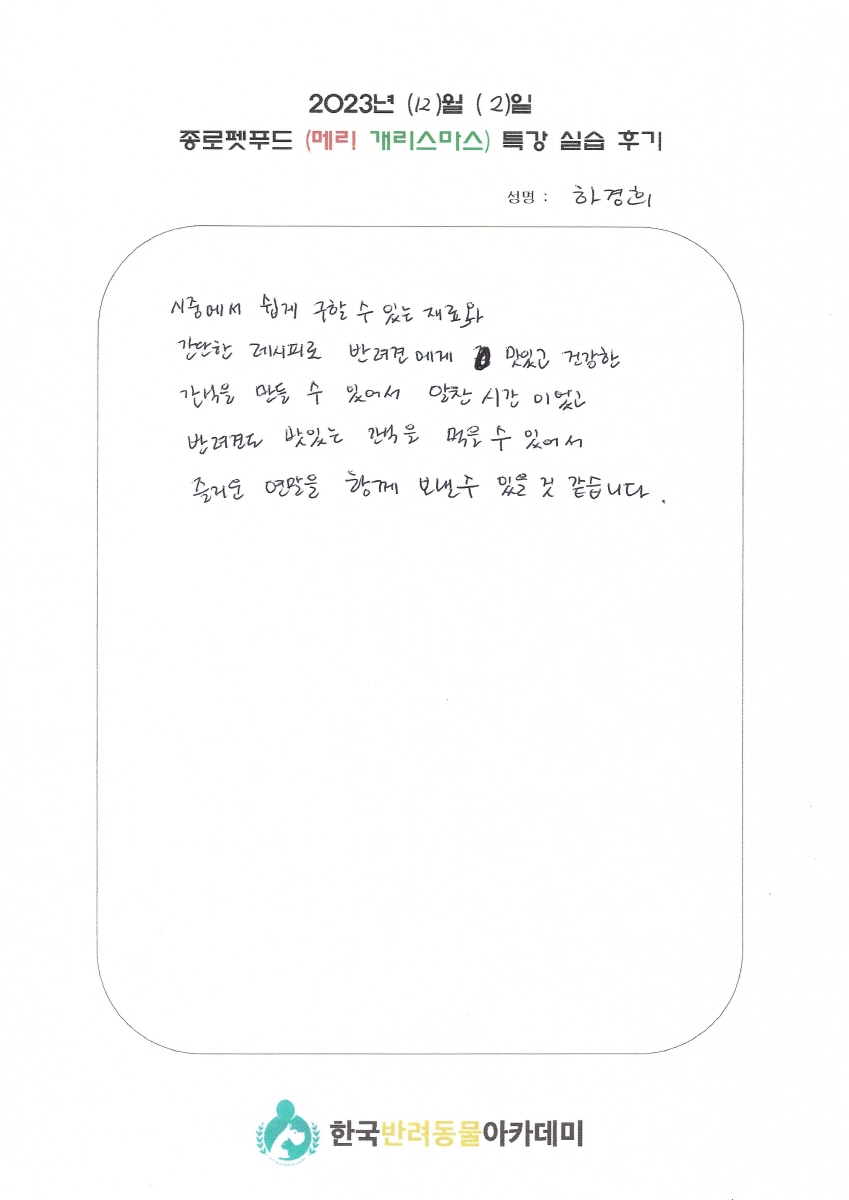 2023년 (12)월 (2)일
종로펫푸드 (메리 개리스마스) 특강 실습 후기
성명 : 하경희
시중에서 쉽게 구할 수 있는 재료와
간단한 레시피로 반려견에게 맛있고 건강한
간식을 만들 수 있어서 알찬 시간 이었고
반려견도 맛있는 간식을 먹을 수 있어서
즐거운 연말을 함께 보낼수 있을 것 같습니다.
한국반려동물아카데미